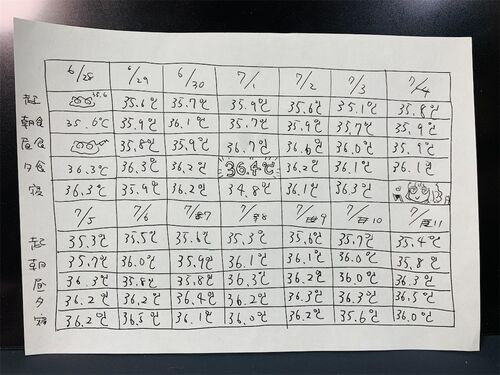 6/28 6/29 6/30 7/1 7/2 7/3 7/4
起 35.6 35.6℃ 35.7℃ 35.9℃ 35.6℃ 35.1℃ 35.8℃
朝食 35.6℃ 35.9℃ 36.1℃ 35.7℃ 35.9℃ 35.7℃ 35.9℃
昼食 35.8℃ 35.9℃ 36.7℃ 36.6℃ 36.0℃ 35.9℃
夕食 36.3℃ 36.3℃ 36.2℃ 36.4℃ 36.2℃ 36.1℃ 36.1℃
寝 36.3℃ 35.9℃ 36.2℃ 34.8℃ 36.1℃ 36.3℃
7/5 7/6 7/7 7/8 7/9 7/10 7/11
起 35.3℃ 35.5℃ 35.6℃ 35.3℃ 35.6℃ 35.7℃ 35.4℃
朝 35.7℃ 36.0℃ 35.9℃ 36.1℃ 36.1℃ 36.0℃ 35.8℃
昼 36.3℃ 35.8℃ 35.8℃ 36.3℃ 36.2℃ 36.0℃ 36.3℃
夕 36.2℃ 36.2℃ 36.4℃ 36.2℃ 36.3℃ 36.3℃ 36.5℃
寝 36.2℃ 36.5℃ 36.1℃ 36.0℃ 36.2℃ 35.6℃ 36.0℃